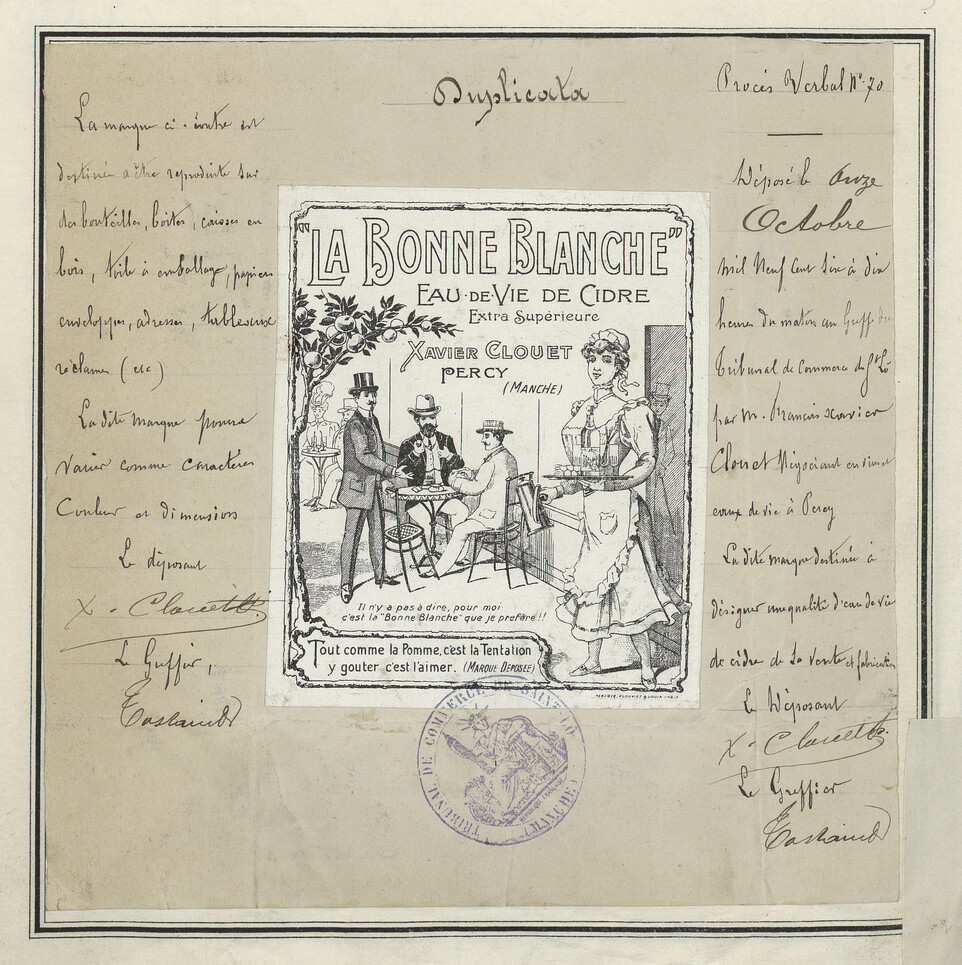 Duplicata
La marque ci-contre est
destinée à être reproduite sur
des bouteilles, boîtes, caisses en
bois, toile à emballage, papiers
enveloppes, adresses, tableaux
réclames (etc)
La dite marque pourra
varier comme caractères
Couleur et dimensions
Le déposant
X. Clouet
Le Greffier,
"LA BONNE BLANCHE"
EAU-DE-VIE DE CIDRE
Extra Supérieure
XAVIER CLOUET
PERCY
(MANCHE)
Il n'y a pas à dire, pour moi
c'est la "Bonne Blanche" que je préfère!!
Tout comme la Pomme, c'est la Tentation
y gouter c'est l'aimer. (MARQUE DÉPOSÉE)
TRIBUNAL DE COMMERCE DE SAINT-LO
(MANCHE)
RÉPUBLIQUE FRANÇAISE
Procès Verbal N° 70
Déposé le Onze
Octobre
mil Neuf Cent Six à dix
heures du matin au Greffe du
Tribunal de Commerce de St Lô
par M. Francois Xavier
Clouet Négociant en vins et
eaux de vie à Percy
La dite marque destinée à
désigner une qualité d'eau de vie
de cidre de sa vente et fabrication
Le Déposant
X. Clouet
Le Greffier